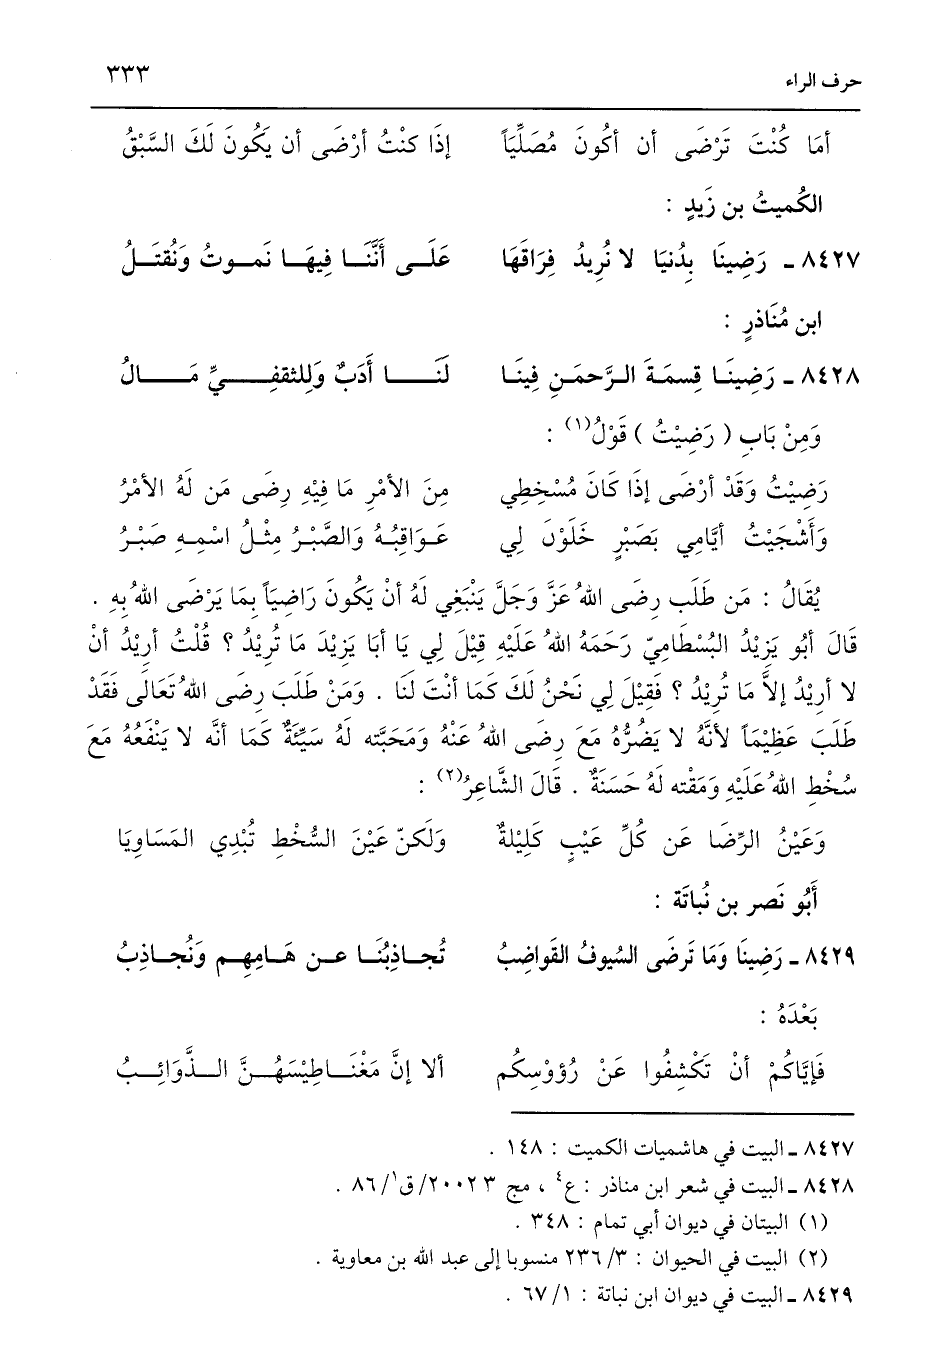 حرف الراء ٣٣٣
أمَا كُنْتَ تَرْضَى أن أكُونَ مُصَلِّيَاً إذَا كنْتُ أرْضَى أن يَكُونَ لَكَ السَّبْقُ
الكُميتُ بن زَيدٍ :
٨٤٢٧ ـ رَضِينَا بِدُنيَا لا نُرِيدُ فِرَاقَهَا عَلَى أنَّنَا فِيهَا نَموتُ وَنُقتَلُ
ابن مُنَاذرٍ :
٨٤٢٨ ـ رَضِينَا قِسمَةَ الرَّحمَنِ فِينَا لَنَا أَدَبٌ وَلِلثقفِيِّ مَالُ
وَمِنْ بَابِ ( رَضِيْتُ ) قَوْلُ(١) :
رَضِيْتُ وَقَدْ أرْضَى إذَا كَانَ مُسْخِطِي مِنَ الأمْرِ مَا فِيْهِ رِضَى مَن لَهُ الأمْرُ
وَأَشْجَيْتُ أيَّامِي بِصَبْرٍ خَلَوْنَ لِي عَوَاقِبُهُ وَالصَّبْرُ مِثْلُ اسْمِهِ صَبْرُ
يُقَالُ : مَن طَلَب رِضَى اللهُ عَزَّ وَجَلَّ يَنْبَغِي لَهُ أنْ يَكُونَ رَاضِيَاً بِمَا يَرْضَى اللهُ بِهِ .
قَالَ أبُو يَزِيْدُ البُسْطَامِيّ رَحَمَهُ اللهُ عَلَيْهِ قِيْلَ لِي يَا أبَا يَزِيْدَ مَا تُرِيْدُ ؟ قُلْتُ أرِيْدُ أنْ
لا أرِيْدُ إلاَّ مَا تُرِيْدُ ؟ فَقِيْلَ لِي نَحْنُ لَكَ كَمَا أنْتَ لَنَا . وَمَنْ طَلَبَ رِضَى اللهُ تَعَالَى فَقَدْ
طَلَبَ عَظِيْمَاً لأنَّهُ لا يَضُرُّهُ مَعَ رِضَى اللهُ عَنْهُ وَمَحَبَّته لَهُ سَيِّئَةٌ كَمَا أنَّه لا يَنْفَعُهُ مَعَ
سُخْطِ اللهُ عَلَيْهِ وَمَقْته لَهُ حَسَنَةٌ . قَالَ الشَّاعِرُ(٢) :
وَعَيْنُ الرِّضَا عَن كُلِّ عَيْبٍ كَلِيْلةٌ وَلَكنّ عَيْنَ السُّخْطِ تُبْدِي المَسَاوِيَا
أبُو نَصر بن نُباتَة :
٨٤٢٩ ـ رَضِينَا وَمَا تَرضَى السُيوفُ القَواضِبُ تُجاذِبُنَا عن هَامِهِم وَنُجاذِبُ
بَعْدَهُ :
فَإيَّاكُمْ أنْ تَكْشِفُوا عَنْ رُؤوْسِكُم ألا إنَّ مَغْنَاطِيْسَهُنَّ الذَّوَائِبُ
٨٤٢٧ ـ البيت في هاشميات الكميت : ١٤٨ .
٨٤٢٨ ـ البيت في شعر ابن مناذر : ع٤ ، مج ٢٠٠٢٣/ق١/٨٦ .
(١) البيتان في ديوان أبي تمام : ٣٤٨ .
(٢) البيت في الحيوان : ٢٣٦/٣ منسوبا إلى عبد الله بن معاوية .
٨٤٢٩ ـ البيت في ديوان ابن نباتة : ٦٧/١ .